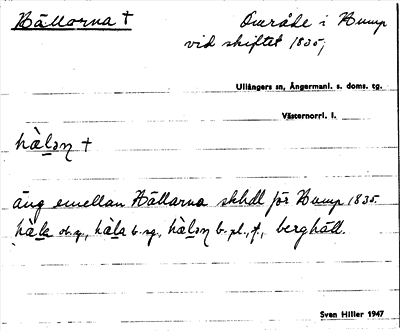 Hällorna †
Område i Hump
vid skiftet 1835,
Ullångers sn, Ångermanl. s. doms. tg.
Västernorrl. l.
hàlən †
äng emellan Hällorna skhdl för Hump 1835.
hàla ob. sg., hàla b. sg., hàlən b. pl., f., berghäll.
Sven Hiller 1947